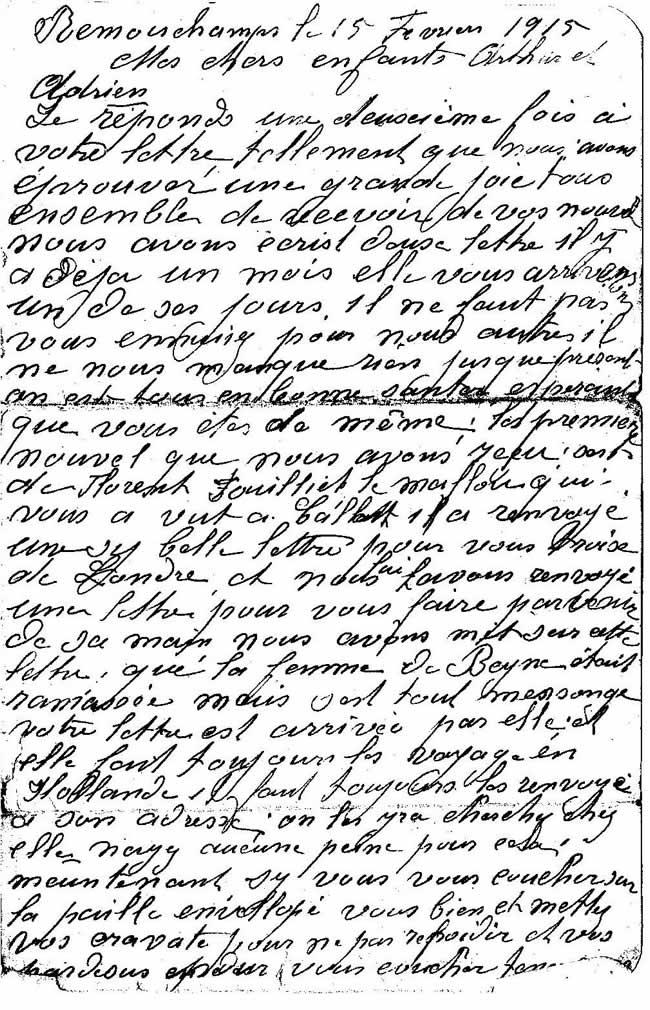 Remouchamps le 15 Fevrier 1915
Mes chers enfants Arthur et
Adrien
Je réponds une deuscième fois a
votre lettre tellement que nous avons
éprouver une grande joie tous
ensemble de recevoir de vos nouvel
nous avons écrist douse lettre il y
a déja un mois elle vous arriverons
un de ses jours il ne faut pas
vous ennuiy pour nous autres il
ne nous manque rien jusque présent
on est tous en bonne santer esperant
que vous etes de même; les premiere
nouvel que nous avons reçu sest
de Florent Fouilliet le mallou qui
vous a vut a il a renvoyé
une sy belle lettre pour vous troise
de Londre et nous lui lavons renvoyé
une lettre pour vous faire parvenir
de sa main nous avons mit sur cette
lettre, que la femme de Beyne était
ramassée mais sest tout mensonge
votre lettre est arrivée par elle et
elle faut toujours les voyage en
Hollande il faut toujours les renvoyé
a son adresse on les yra cherchy chez
elle nayy aucune peine pour cela
maintenant sy vous vous coucher sur
la paille envellopé vous bien et metty
vos cravate pour ne pas refroidir et vos
pardsous vous coucher